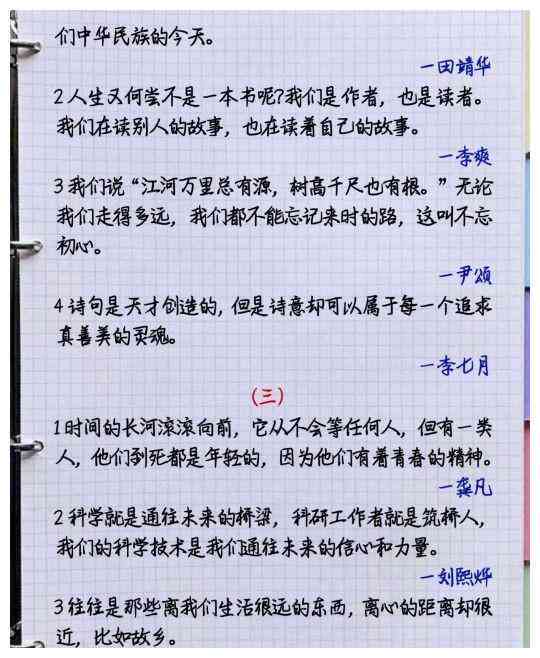 们中华民族的今天。
—田靖华
2 人生又何尝不是一本书呢?我们是作者，也是读者。
我们在读别人的故事，也在读着自己的故事。
—李爽
3 我们说“江河万里总有源，树高千尺也有根。”无论
我们走得多远，我们都不能忘记来时的路，这叫不忘
初心。
—尹颂
4 诗句是天才创造的，但是诗意却可以属于每一个追求
真善美的灵魂。
—李七月
(三)
1 时间的长河滚滚向前，它从不会等任何人，但有一类
人，他们到死都是年轻的，因为他们有着青春的精神。
—龚凡
2 科学就是通往未来的桥梁，科研工作者就是筑桥人，
我们的科学技术是我们通往未来的信心和力量。
—刘熙烨
3 往往是那些离我们生活很远的东西，离心的距离却很
近，比如故乡。